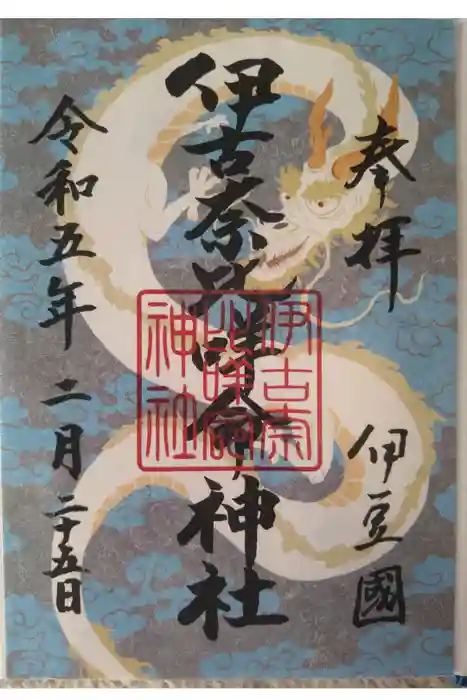 奉拝
伊豆國
伊古奈比咩命神社
伊古奈
比咩命
神社
令和五年二月二十五日